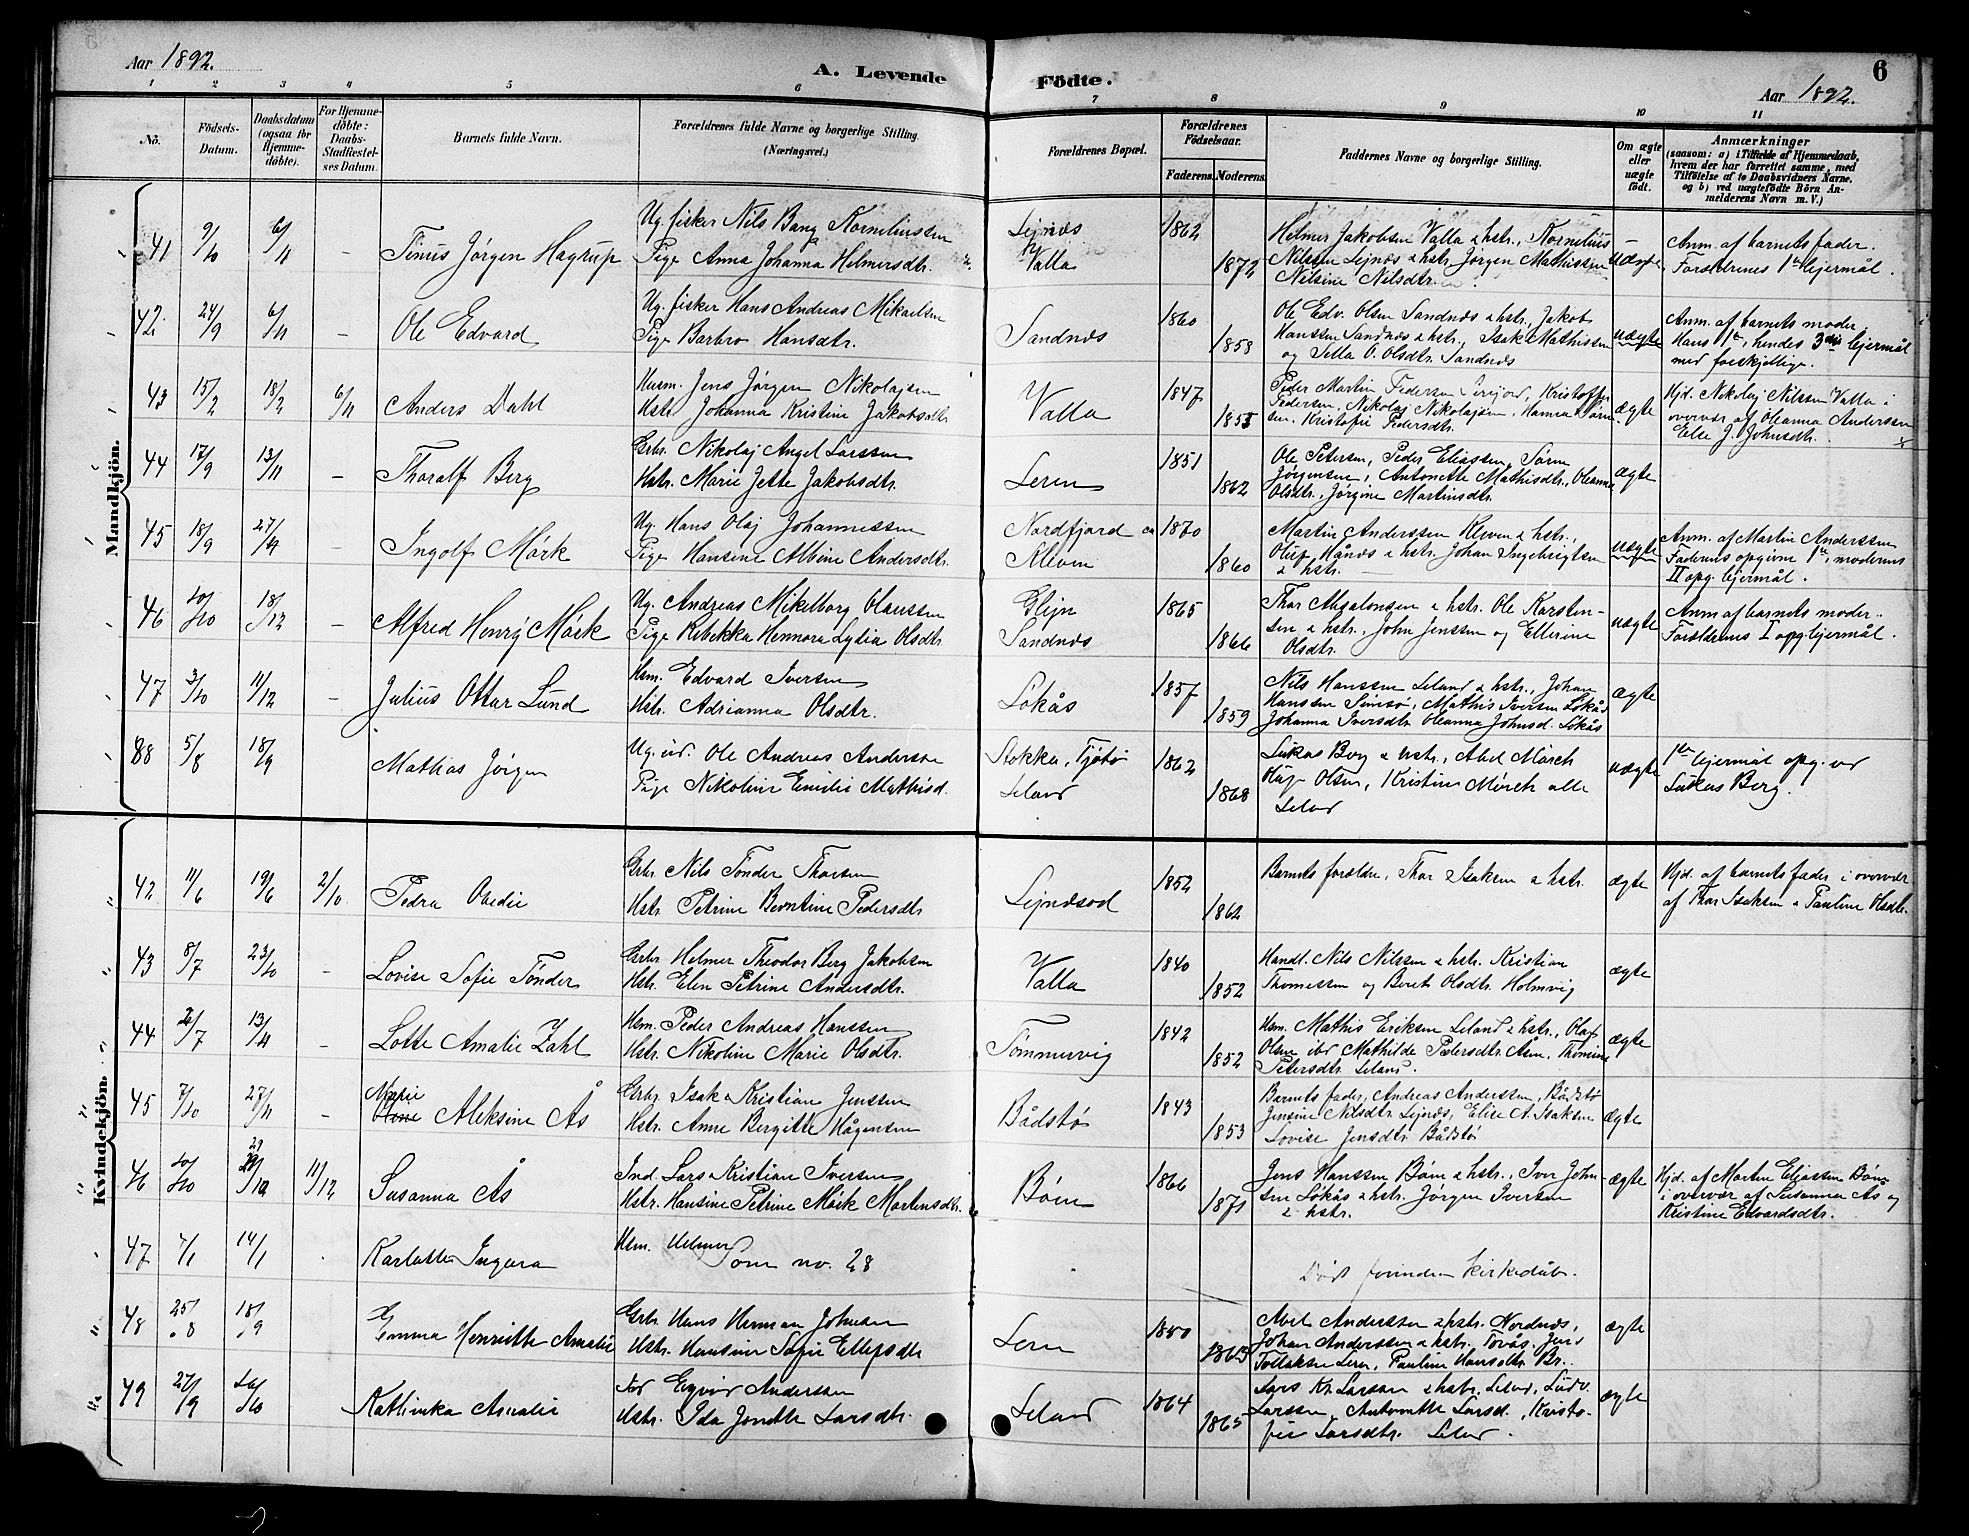 Aar 1892.
A. Levende Födte.
6
Aar 1892.
1 2 3 4 5 6 7 8 9 10 11
No.
Födsels-Datum.
Daabsdatum (ogsaa for Hjemme-döbte).
For Hjemme-döbte: Daabs-Stadfæstel-ses Datum.
Barnets fulde Navn.
Forældrenes fulde Navne og borgerlige Stilling.
(Næringsvei.)
Forældrenes Bopæl.
Forældrenes Födselsaar.
Faderens. Moderens.
Faddernes Navne og borgerlige Stilling.
Om ægte eller uægte födt.
Anmærkninger
(saasom: a) i Tilfælde af Hjemmedaab,
hvem der har forrettet samme, med
Tilföielse af to Daabsvidners Navne.
og b) ved uægtefödte Börn An-
melderens Navn m. V.)
Mandkjön.
41 9/10 6/11 Tinus Jørgen Hagrup
Ug. fisker Nils Bang Korneliussen
Pige Anna Johanna Helmersdtr.
Lejnæs
Valla
1862
1872
Helmer Jakobsen Valla & hstr., Kornelius
Nilssen Lejnæs & hstr. Jørgen Mathissen
Nilsine Nilsdtr.
uægte
Anm. af barnets fader.
Forældrenes 1ste lejermål.
42 24/9 6/11 – Ole Edvard
Ug. fisker Hans Andreas Mikaelsen
Pige Barbro Hansdtr.
Sandnæs
1860
1858
Ole Edv. Olsen Sandnæs & hstr., Jakob
Hanssen Sandnæs & hstr., Isak Mathissen
og Sella O. Olsdtr. Sandnæs
uægte
Anm. af barnets moder.
Hans 1te, hendes 3die lejermål
med forskjellige.
43 15/2 18/2 6/11 Anders Dahl
Husm. Jens Jørgen Nikolajsen
Hstr. Johanna Kristine Jakobsdtr.
Valla
1847
1855
Peder Martin Pedersen, Kristoffer
Pedersen, Nikolaj Nikolajsen, Hanna
Kristofie Pedersdtr.
ægte
Hjd. Nikolaj Nilssen Valla i
overvær af Oleanna Anderssen
Else J. Johnsdtr.
44 17/9 13/11 – Thoralf Berg
Grbr. Nikolaj Angel Larssen
Hstr. Marie Jette Jakobsdtr.
Leren
1851
1862
Ole Petersen, Peder Eliassen, Søren
Jørgensen, Antonette Mathisdtr., Oleanna
Olsdtr., Jørgine Martinsdtr.
ægte
45 18/9 27/11 – Ingolf Mørk
Ug. Hans Olaj Johannessen
Pige Hansine Albine Andersdtr.
Nordfjord
Kleven
1870
1860
Martin Anderssen Kleven & hstr.,
Oluf Hånæs & hstr. Johan Ingebrigtsen
& hstr.
uægte
Anm. af Martin Anderssen
Faderens opgivne 1te, moderens
II opg. lejermål.
46 20/10 18/12 – Alfred Henry Mørk
Ug. Andreas Mikelborg Olaussen
Pige Rebekka Hennora Lydia Olsdtr.
Glejn
Sandnæs
1865
1866
Thor Absalonsen & hstr. Ole Karsten-
sen & hstr., John Jenssen og Ellerine
Olsdtr.
uægte
Anm. af barnets moder.
Forældrenes I opg. lejermål.
47 3/10 11/12 – Julius Ottar Lund
Hsm. Edvard Iversen
Hstr. Adrianna Olsdtr.
Løkås
1857
1859
Nils Hanssen Leland & hstr., Johan
Hanssen Simsø, Mathis Iversen Løkås
Johanna Iversdtr. Oleanna Johnsd. Løkås
ægte
88 5/8 18/9 Mathias Jørgen
Ug. ind. Ole Andreas Andersen
Pige Nikoline Emilie Mathisd.
Stokka, Tjøtø
Leland
1862
1868
Lukas Berg & hstr., Abel Mørch
Oluf Olsen, Kristine Mørch alle
Leland
uægte
1ste lejermål opg. ved
Lukas Berg.
Kvindekjön.
42 11/6 19/6 2/10 Pedra Obedie
Grbr. Nils Tønder Thorsen
Hstr. Petrine Berntine Pedersdtr
Lejnæsod
1852
1862
Barnets forældre, Thor Isaksen & hstr.
ægte
Hjd. af barnets fader i overvær
af Thor Isaksen & Pauline Olsdtr.
43 8/7 23/10 – Lovise Sofie Tønder
Grbr Helmer Theodor Berg Jakobsen
Hstr. Elen Petrine Andersdtr.
Valla
1840
1852
Handl. Nils Nilssen & hstr. Kristian
Thomessen og Beret Olsdtr. Holmvig
ægte
44 26/7 13/11 – Lotte Amalie Zahl
Hsm. Peder Andreas Hanssen
Hstr. Nikoline Marie Olsdtr.
Tømmervig
1842
1852
Hsm. Mathis Eriksen Leland & hstr., Olaf
Olsen ibd Mathilde Pedersdtr. Åsen, Thomine
Petersdtr. Leland.
ægte
45 7/10 27/11 – Marie Aleksine Ås
Grbr. Isak Kristian Jenssen
Hstr. Anne Bergitte Hågensen
Bådstø
1843
1853
Barnets fader, Andreas Anderssen, Bådstø
Jensine Nilsdtr. Lejnæs, Elise A. Isaksen
Lovise Jensdtr. Bådstø
ægte
46 20/10 29/10 11/12 Susanna Ås
Ind. Lars Kristian Iversen
Hstr. Hansine Petrine Mørk Martinsdtr.
Bøen
1866
1871
Jens Hanssen Bøen & hstr., Iver John-
sen Løkås & hstr. Jørgen Iversen
& hstr.
ægte
Hjd. af Martin Eliassen Bøen
i overvær af Susanna Ås og
Kristine Edvardsdtr.
47 7/1 14/1 Karlotte Ingera
Hsm. Helmer
Som no. 28
Død forinden kirkedåb.
48 25/8 18/9 Emma Henriette Amalie
Grbr. Hans Herman Johnsen
Hstr. Hansine Sofie Ellefsdtr
Leren
1850
1865
Abel Anderssen & hstr. Nordnæs,
Johan Anderssen & hstr. Torås, Jens
Tollaksen Leren, Pauline Hansdtr. Br.
ægte
49 27/9 20/10 Kathinka Amalie
Ejvind Anderssen
Hstr. Ida Jonette Larsdtr.
Leland
1864
1865
Lars Kr. Larsen & hstr. Leland, Ludv.
Larssen, Antonette Larsd., Kristo-
fie Larsdtr. Leland.
ægte